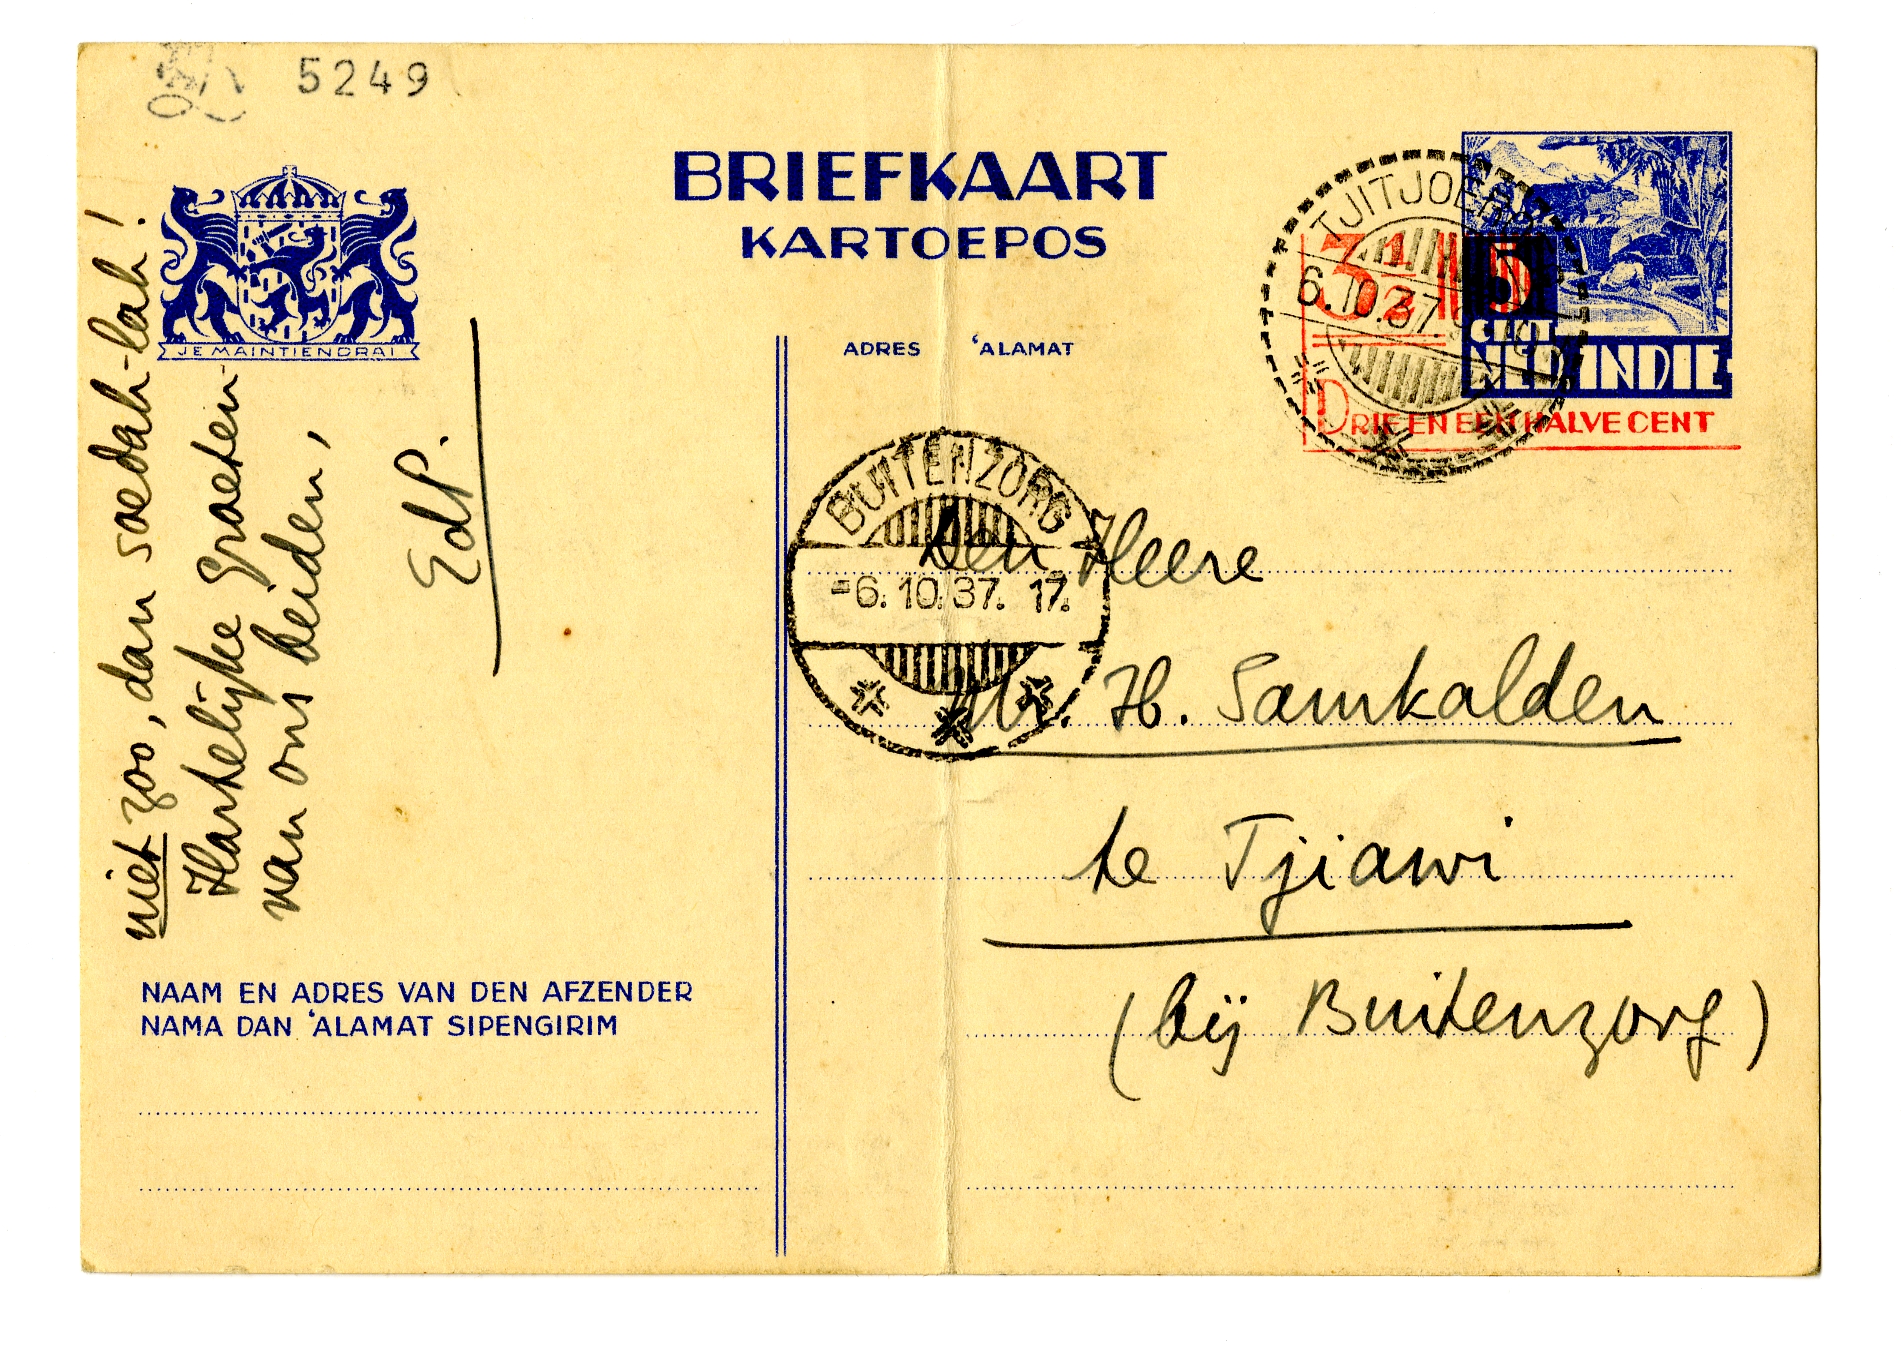 5249
BRIEFKAART
KARTOEPOS
JE MAINTIENDRAI
ADRES 'ALAMAT
6.10.37
3½
5
CENT
NED. INDIE
DRIE EN EEN HALVE CENT
BUITENZORG
-6.10.37. 17.
niet zoo, dan soedah-lah!
Hartelijke Groeten
van ons beiden,
EdP.
Den Heere
Mr. H. Samkalden
te Tjiawi
(bij Buitenzorg)
NAAM EN ADRES VAN DEN AFZENDER
NAMA DAN 'ALAMAT SIPENGIRIM